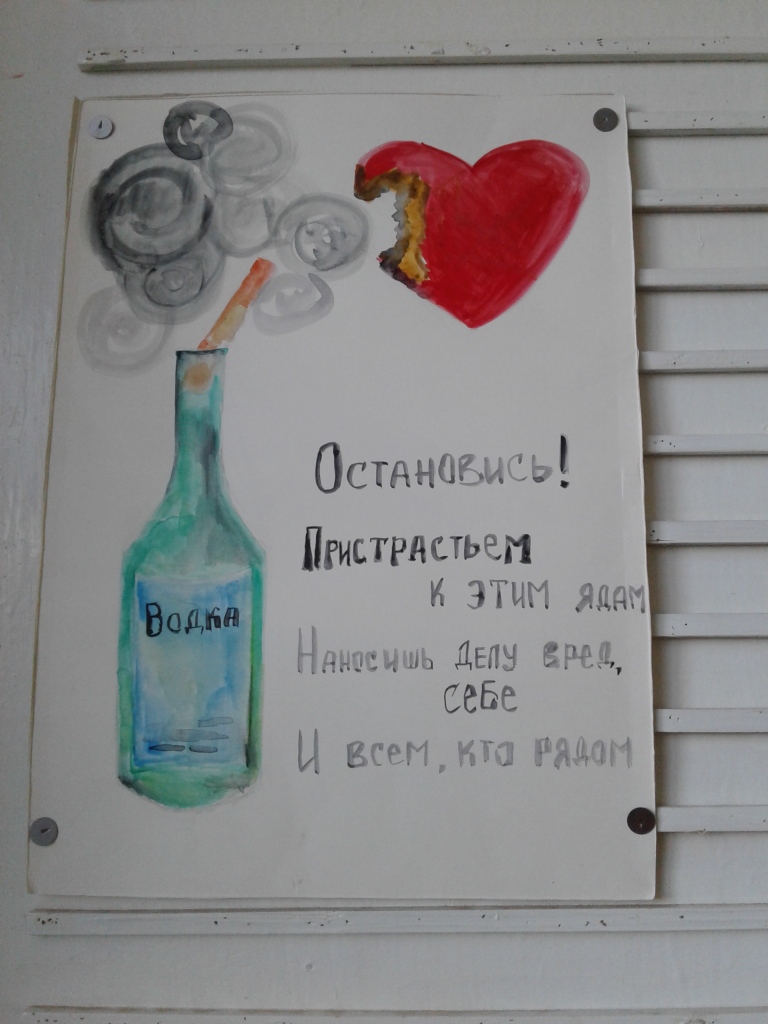 Водка
Остановись!
Пристрастьем
к этим ядам
Наносишь делу вред,
себе
И всем, кто рядом